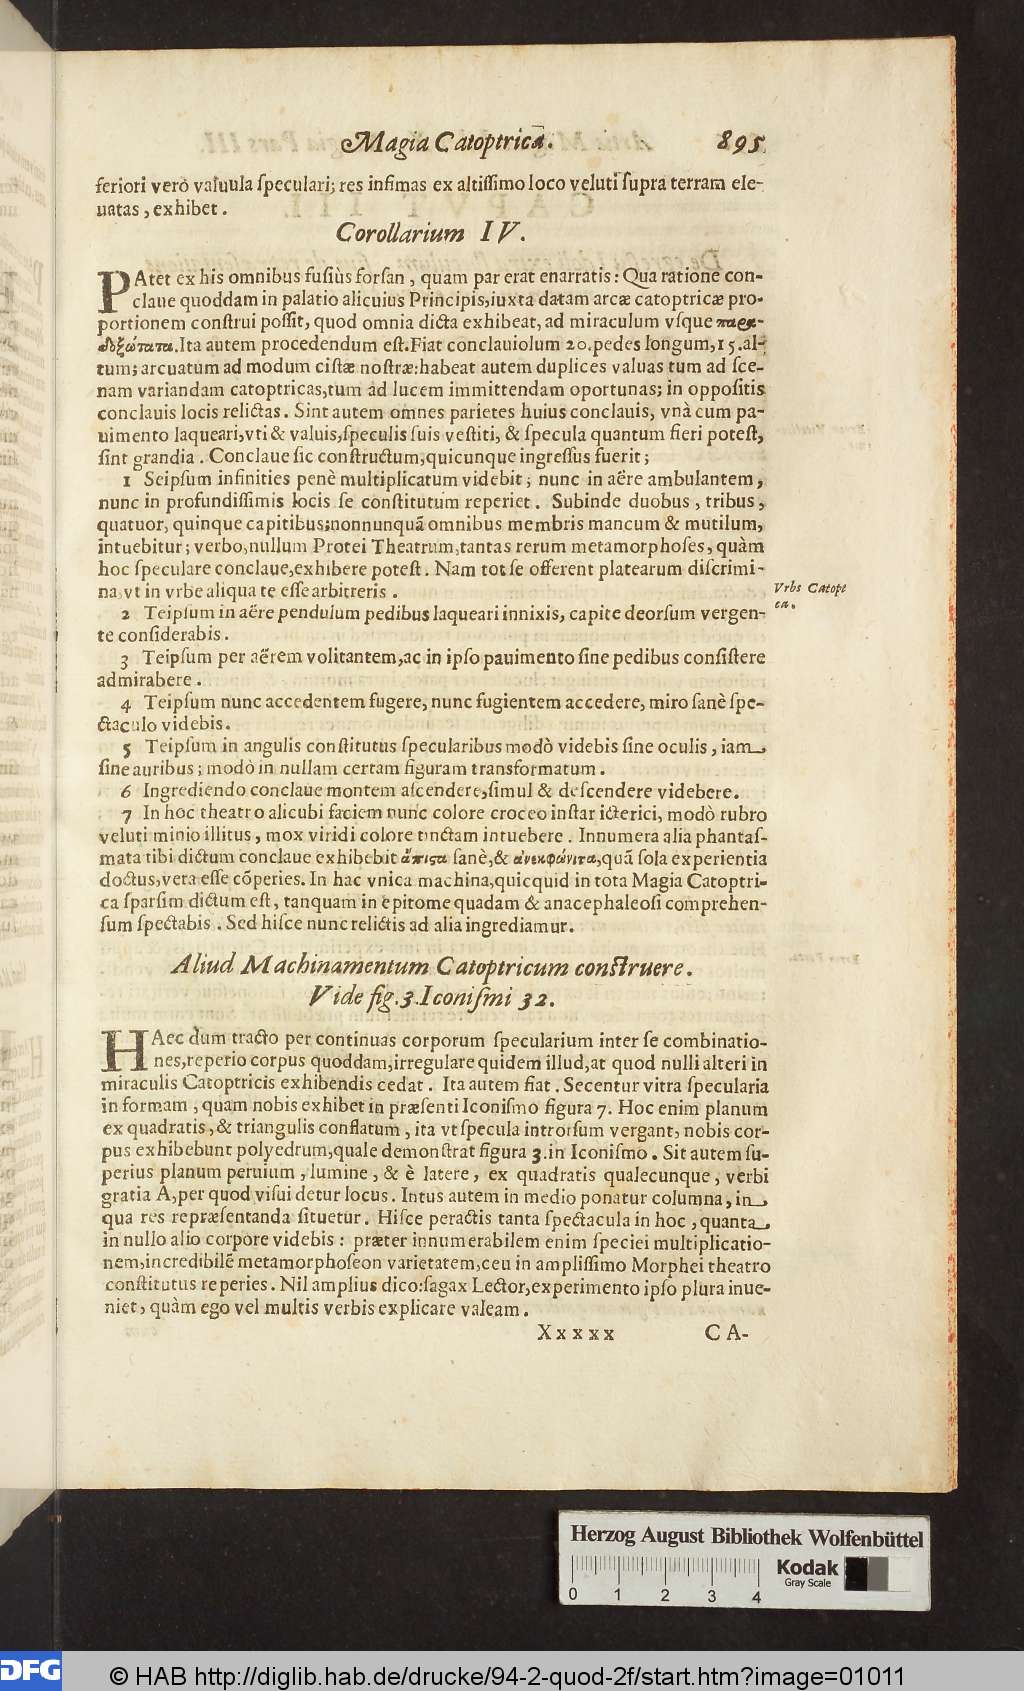 Magia Catoptrica. 895
feriori verò valuula speculari; res infimas ex altissimo loco veluti supra terram ele-
uatas, exhibet.
Corollarium IV.
PAtet ex his omnibus fusiùs forsan, quam par erat enarratis: Qua ratione con-
claue quoddam in palatio alicuius Principis, iuxta datam arcæ catoptricæ pro-
portionem construi possit, quod omnia dicta exhibeat, ad miraculum vsque παρα-
δοξώτατα. Ita autem procedendum est. Fiat conclauiolum 20. pedes longum, 15. al-
tum; arcuatum ad modum cistæ nostræ: habeat autem duplices valuas tum ad sce-
nam variandam catoptricas, tum ad lucem immittendam oportunas; in oppositis
conclauis locis relictas. Sint autem omnes parietes huius conclauis, vnà cum pa-
uimento laqueari, vti & valuis, speculis suis vestiti, & specula quantum fieri potest,
sint grandia. Conclaue sic constructum, quicunque ingressus fuerit;
1 Seipsum infinities penè multiplicatum videbit; nunc in aëre ambulantem,
nunc in profundissimis locis se constitutum reperiet. Subinde duobus, tribus,
quatuor, quinque capitibus; nonnunquā omnibus membris mancum & mutilum,
intuebitur; verbo, nullum Protei Theatrum, tantas rerum metamorphoses, quàm
hoc speculare conclaue, exhibere potest. Nam tot se offerent platearum discrimi-
na, vt in vrbe aliqua te esse arbitreris.
Vrbs Catopt
ca.
2 Teipsum in aëre pendulum pedibus laqueari innixis, capite deorsum vergen-
te considerabis.
3 Teipsum per aërem volitantem, ac in ipso pauimento sine pedibus consistere
admirabere.
4 Teipsum nunc accedentem fugere, nunc fugientem accedere, miro sanè spe-
ctaculo videbis.
5 Teipsum in angulis constitutus specularibus modò videbis sine oculis, iam
sine auribus; modò in nullam certam figuram transformatum.
6 Ingrediendo conclaue montem ascendere, simul & descendere videbere.
7 In hoc theatro alicubi faciem nunc colore croceo instar icterici, modò rubro
veluti minio illitus, mox viridi colore tinctam intuebere. Innumera alia phantas-
mata tibi dictum conclaue exhibebit ἄπιστα sanè, & ἀνεκφώνιτα, quā sola experientia
doctus, vera esse cōperies. In hac vnica machina, quicquid in tota Magia Catoptri-
ca sparsim dictum est, tanquam in epitome quadam & anacephaleosi comprehen-
sum spectabis. Sed hisce nunc relictis ad alia ingrediamur.
Aliud Machinamentum Catoptricum construere.
Vide fig. 3. Iconismi 32.
HAec dum tracto per continuas corporum specularium inter se combinatio-
nes, reperio corpus quoddam, irregulare quidem illud, at quod nulli alteri in
miraculis Catoptricis exhibendis cedat. Ita autem fiat. Secentur vitra specularia
in formam, quam nobis exhibet in præsenti Iconismo figura 7. Hoc enim planum
ex quadratis, & triangulis conflatum, ita vt specula introrsum vergant, nobis cor-
pus exhibebunt polyedrum, quale demonstrat figura 3. in Iconismo. Sit autem su-
perius planum peruium, lumine, & è latere, ex quadratis qualecunque, verbi
gratia A, per quod visui detur locus. Intus autem in medio ponatur columna, in
qua res repræsentanda situetur. Hisce peractis tanta spectacula in hoc, quanta
in nullo alio corpore videbis: præter innumerabilem enim speciei multiplicatio-
nem, incredibilē metamorphoseon varietatem, ceu in amplissimo Morphei theatro
constitutus reperies. Nil amplius dico: sagax Lector, experimento ipso plura inue-
niet, quàm ego vel multis verbis explicare valeam.
Xxxxx CA-
Herzog August Bibliothek Wolfenbüttel
Kodak
Gray Scale
0 1 2 3 4
DFG © HAB http://diglib.hab.de/drucke/94-2-quod-2f/start.htm?image=01011